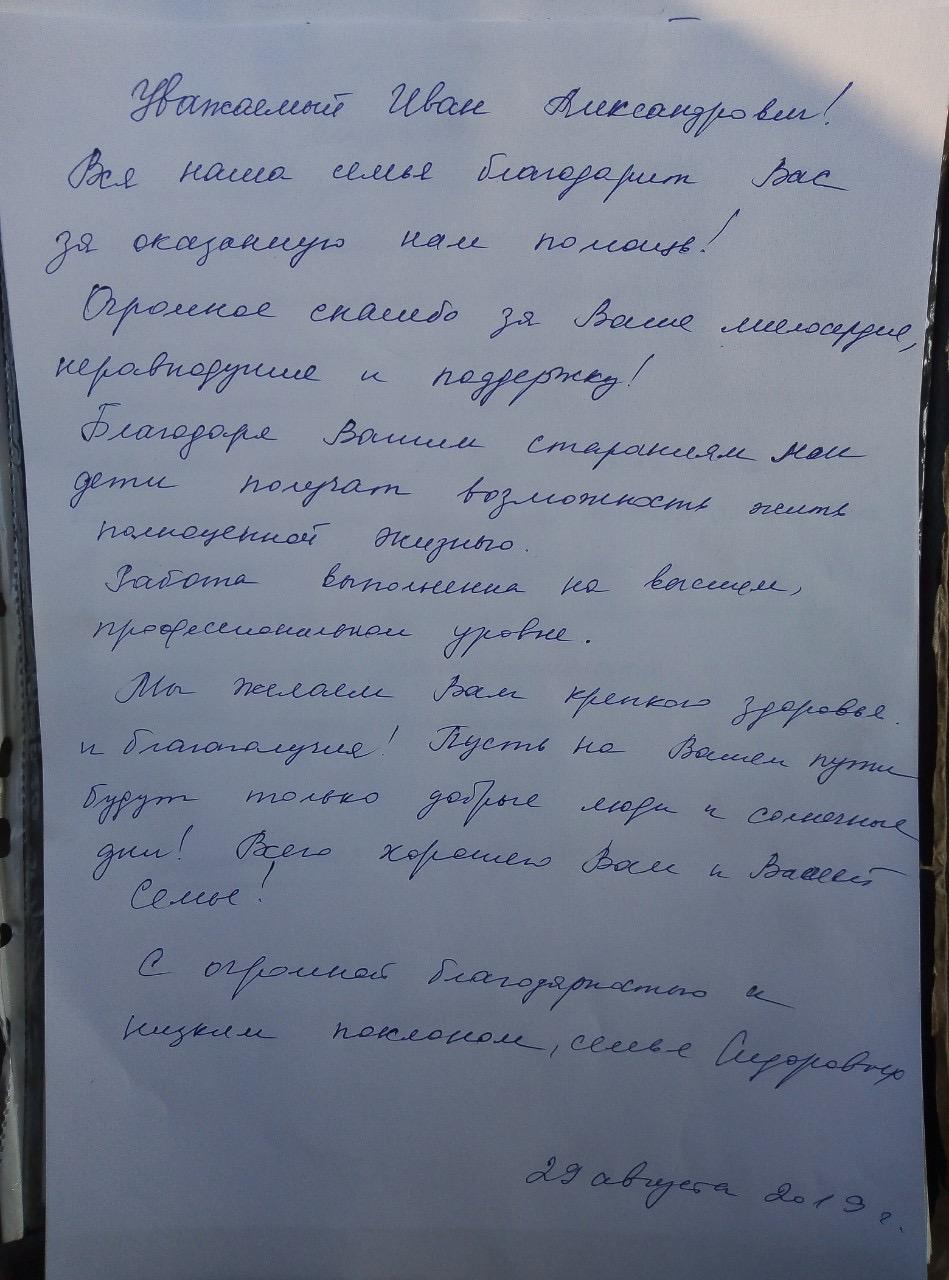 Уважаемый Иван Александрович!
Вся наша семья благодарит Вас
за оказанную нам помощь!
Огромное спасибо за Ваше милосердие,
неравнодушие и поддержку!
Благодаря Вашим стараниям наши
дети получат возможность жить
полноценной жизнью.
Работа выполненна на высшем,
профессиональном уровне.
Мы желаем Вам крепкого здоровья
и благополучия! Пусть на Вашем пути
будут только добрые люди и солнечные
дни! Всего хорошего Вам и Вашей
Семье!
С огромной благодарностью и
низким поклоном, семья Сидоровых
29 августа 2019 г.